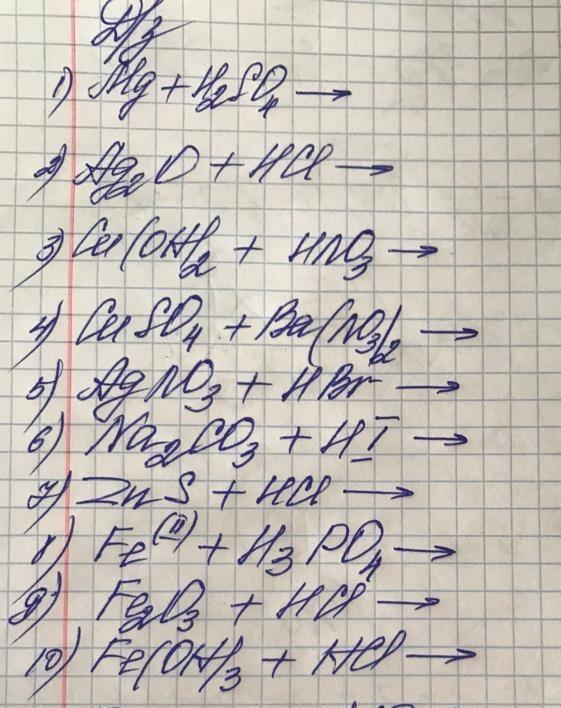 Д/з
1) Mg + H₂SO₄ →
2) Ag₂O + HCl →
3) Cu(OH)₂ + HNO₃ →
4) CuSO₄ + Ba(NO₃)₂ →
5) AgNO₃ + HBr →
6) Na₂CO₃ + HI →
7) ZnS + HCl →
8) Fe⁽ᴵᴵ⁾ + H₃PO₄ →
9) Fe₂O₃ + HCl →
10) Fe(OH)₃ + HCl →